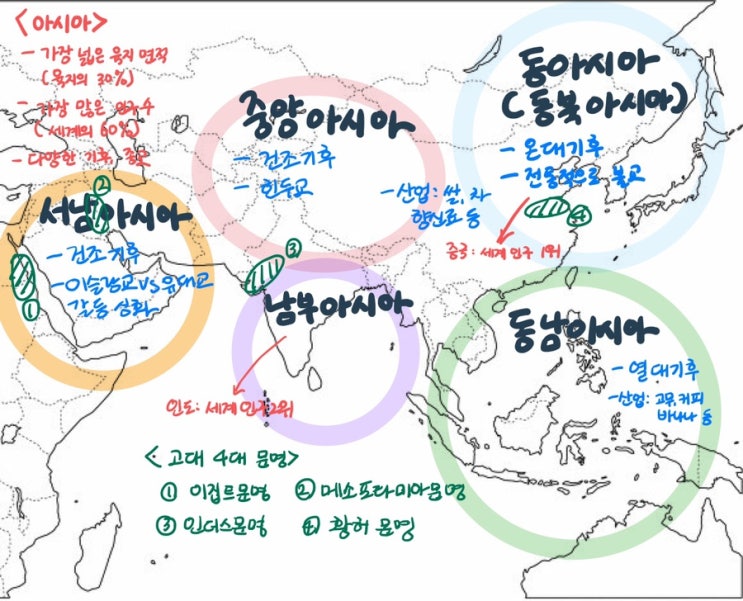 <아시아>
- 가장 넓은 육지 면적
(육지의 30%)
- 가장 많은 인구
(세계의 60%)
- 다양한 기후, 종교
중앙아시아
- 건조기후
- 힌두교
동아시아
(동북아시아)
- 온대기후
- 전통적으로 불교
중국: 세계 인구 1위
- 산업: 쌀, 차
향신료 등
서남아시아
- 건조기후
- 이슬람교 vs 유대교
갈등 심화
①
②
③
④
남부아시아
인도: 세계 인구 2위
동남아시아
- 열대기후
- 산업: 고무, 커피
바나나 등
<고대 4대 문명>
① 이집트문명 ② 메소포타미아문명
③ 인더스문명 ④ 황허 문명